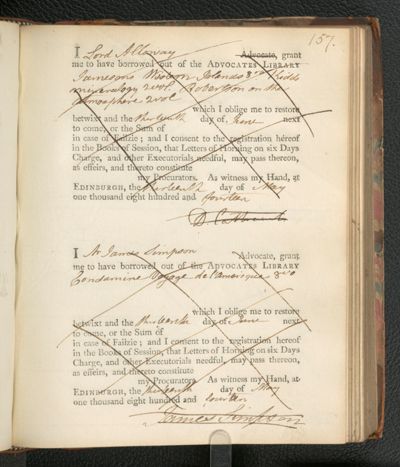 157.
I Lord Alloway Advocate, grant
me to have borrowed out of the ADVOCATES LIBRARY
Jamesons Islands 8vo Kidds
mineralogy 2 vol. Robertson on the
atmosphere 2 vol
which I oblige me to restore
betwixt and the thirteenth day of June next
to come, or the Sum of
in case of Failzie; and I consent to the registration hereof
in the Books of Session, that Letters of Horning on six Days
Charge, and other Executorials needful, may pass thereon,
as effeirs, and thereto constitute
my Procurators. As witness my Hand, at
EDINBURGH, the thirteenth day of May
one thousand eight hundred and fourteen
D Cathcart
I Mr James Simpson Advocate, grant
me to have borrowed out of the ADVOCATES LIBRARY
Condamine Voyage de l'amerique 8vo
which I oblige me to restore
betwixt and the thirteenth day of June next
to come, or the Sum of
in case of Failzie; and I consent to the registration hereof
in the Books of Session, that Letters of Horning on six Days
Charge, and other Executorials needful, may pass thereon,
as effeirs, and thereto constitute
my Procurators. As witness my Hand, at
EDINBURGH, the thirteenth day of May
one thousand eight hundred and fourteen
James Simpson